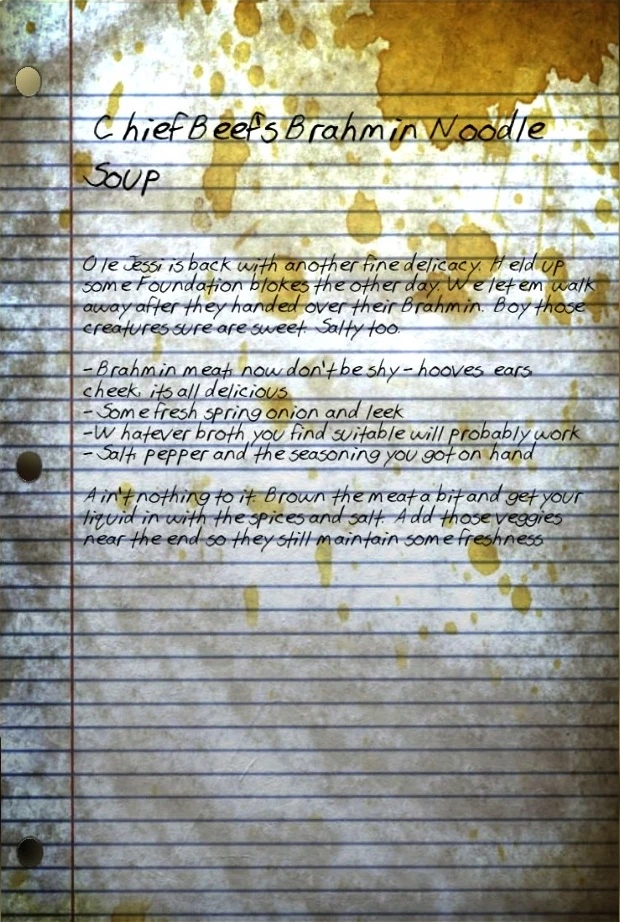 Chief Beefs Brahmin Noodle
Soup
Ole Jessi is back with another fine delicacy. Held up
some Foundation blokes the other day. We let em walk
away after they handed over their Brahmin. Boy those
creatures sure are sweet. Salty too.
-Brahmin meat, now don't be shy - hooves ears
cheek, its all delicious
- Some fresh spring onion and leek
-Whatever broth you find suitable will probably work
- Salt, pepper and the seasoning you got on hand
Ain't nothing to it. Brown the meat a bit and get your
liquid in with the spices and salt. Add those veggies
near the end so they still maintain some freshness